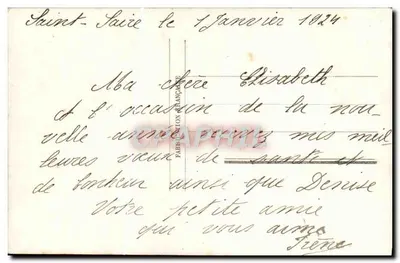 Saint-Saire le 1 Janvier 1924
Ma chère Elisabeth
A l'occasion de la nou-
velle année recevez mes meil-
leures vœux de santé et
de bonheur ainsi que Denise
Votre petite amie
qui vous aime
Irène
FABRICATION FRANÇAISE